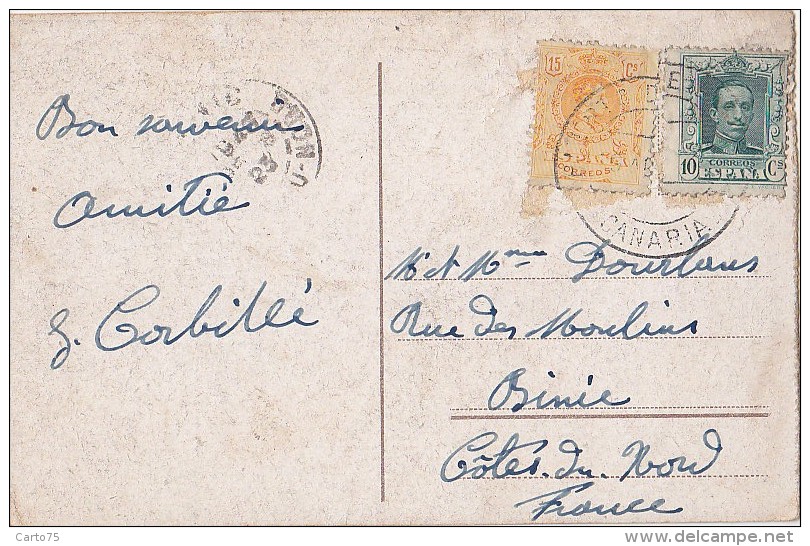 Bon souvenir
Amitié
G. Corbillé
15 Cs
CORREOS
10 CORREOS Cs
ESPAÑA
CANARIA
M et Mme Dourlans
Rue des Moulins
Binic
Côtes-du-Nord
France
Carto75
http://www.delcampe.net